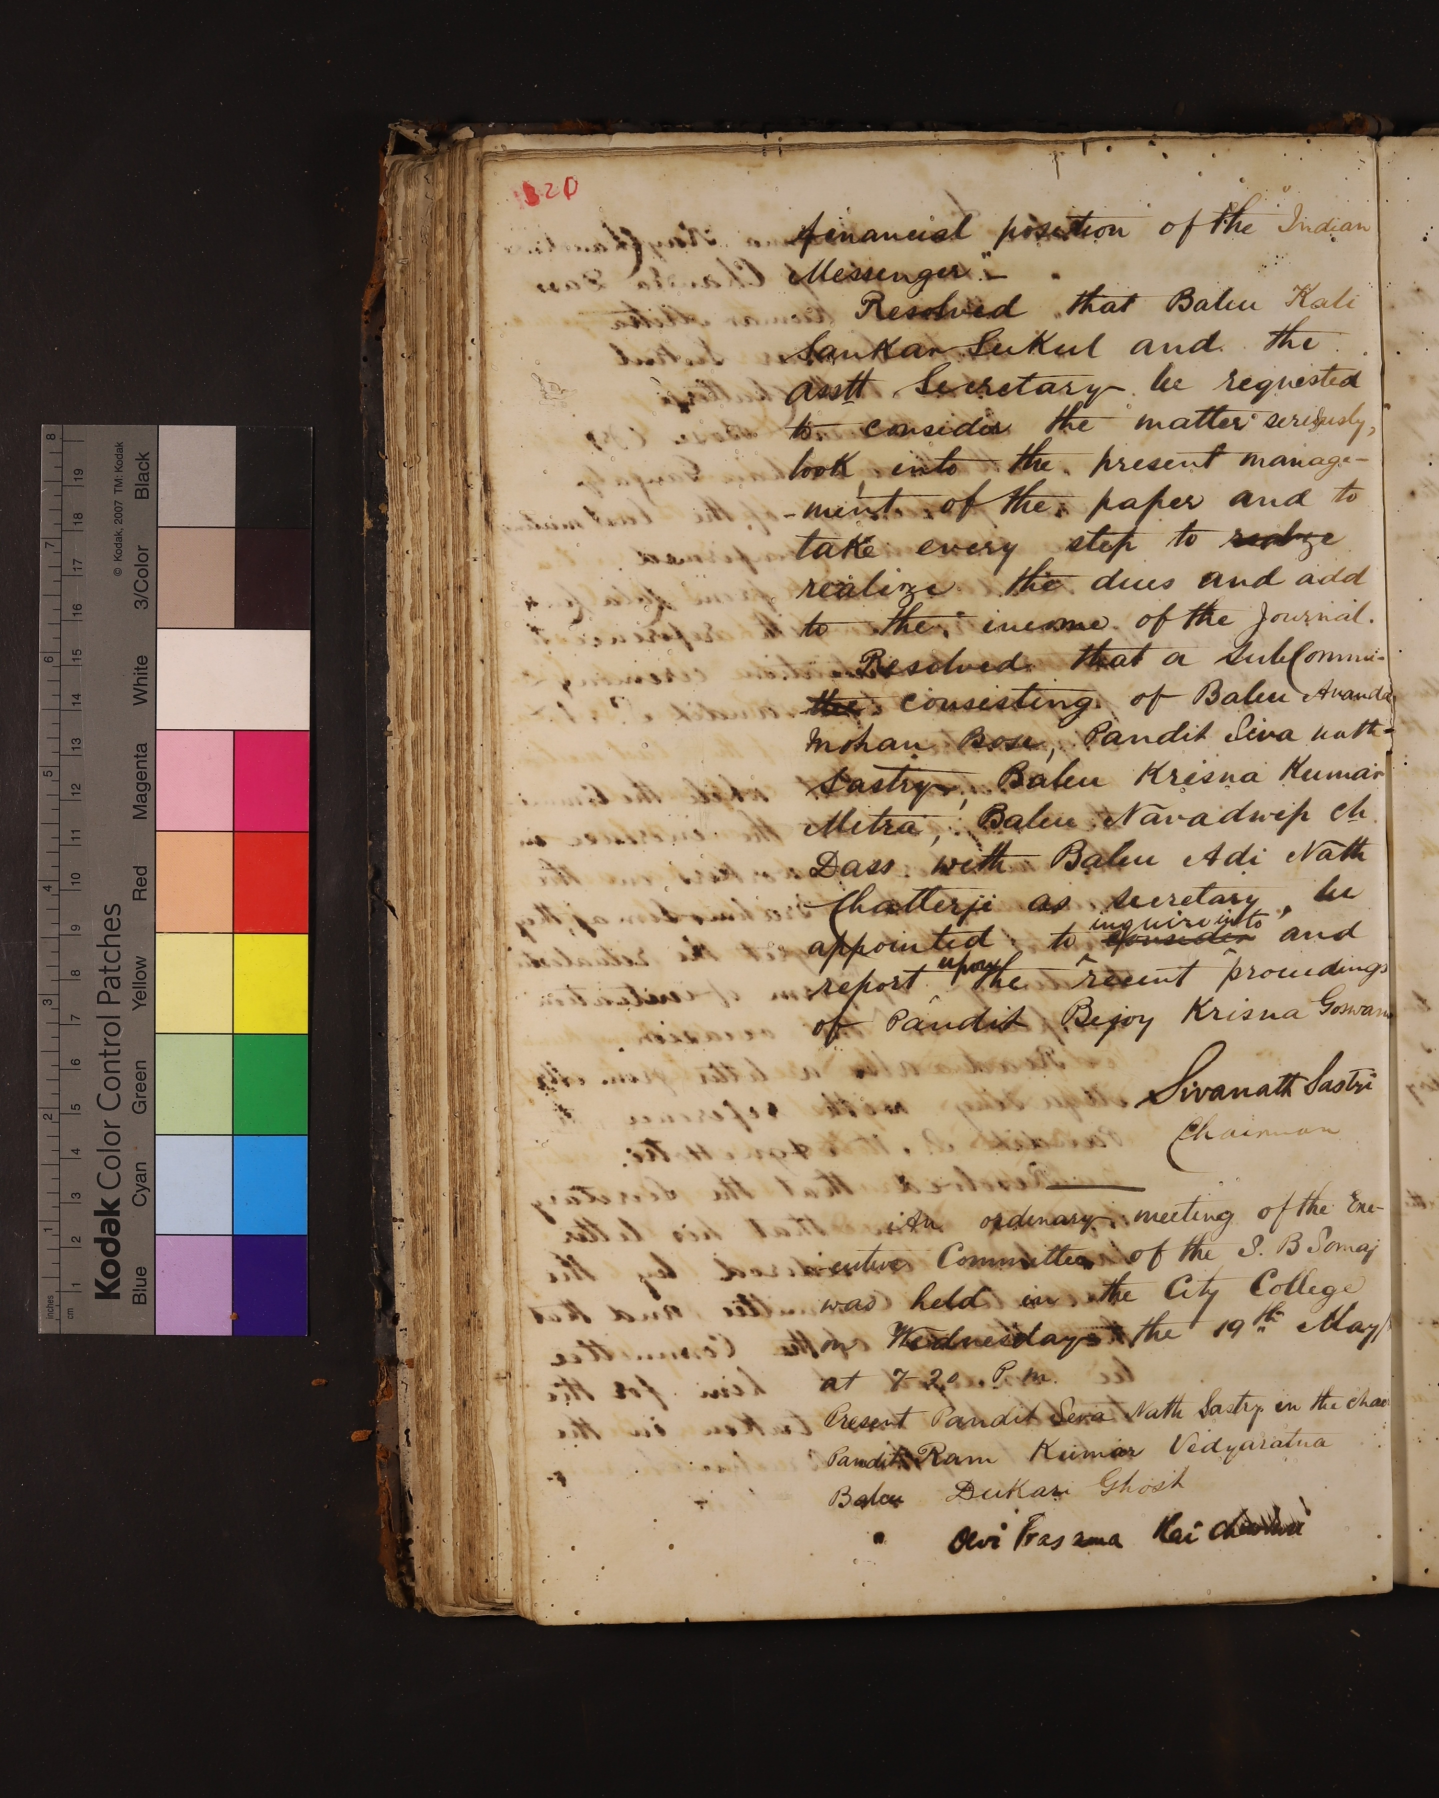 320
financial position of the "Indian
Messenger" –
Resolved that Babu Kali
Sankar Sukul and the
asstt Secretary be requested
to consider the matter seriously,
look into the present manage-
-ment of the paper and to
take every step to realize
realize the dues and add
to the income of the Journal.
Resolved that a SubCommi-
ttee consisting of Babu Ananda
Mohan Bose, Pandit Siva nath
Sastry, Babu Krisna Kumar
Mitra, Babu Navadwip Ch.
Dass with Babu Adi Nath
Chatterji as secretary, be
appointed to consider inquire into and
report upon the recent proceedings
of Pandit Bejoy Krisna Goswami
Sivanath Sastri
Chairman
An ordinary meeting of the Exe-
-cutive Committee of the S. B Somaj
was held in the City College
on Wednesday the 19th May/
at 7-20 P.m.
Present Pandit Seva Nath Sastry in the chair
Pandit Ram Kumar Vidyaratna
Babu Dukari Ghosh
" Devi Prasanna Rai
Kodak Color Control Patches
© Kodak, 2007 TM: Kodak
Blue Cyan Green Yellow Red Magenta White 3/Color Black
inches 1 2 3 4 5 6 7 8
cm 1 2 3 4 5 6 7 8 9 10 11 12 13 14 15 16 17 18 19